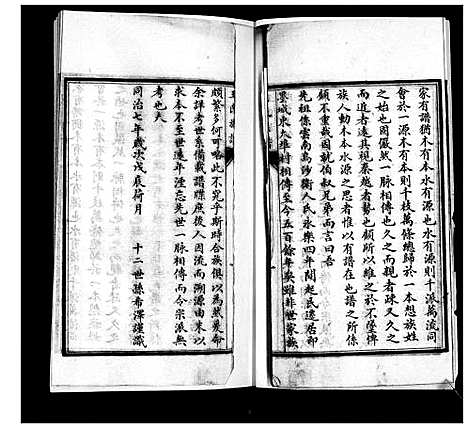 家有譜猶木有本水有源也水有源則千派萬流同
會於一源木有本則千枝萬條總歸於一本想族姓
之始也固儼然一脈相傳也久之而親者疎又久之
而近者遠其視秦越者勢也顧所以維之於不墜俾
族人動木本水源之思者惟以有譜在也譜之所係
顧不重哉就伯叔兄弟而言曰吾
先祖係雲南烏沙衛人氏永樂四年間起民遷居即
墨城東大埠村相傳至今五百餘年矣雖非世家族
頗繁多問可略此不完乎斯時合族俱以為然爰命
余詳考世系備載譜牒庶後人因流而溯源由末以
求本不至世遠年湮忘先世一脈相傳而令宗派無
考也矣
同治七年歲次戊辰荷月 十二世孫希澤謹識